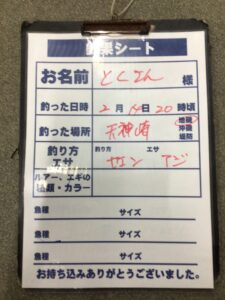 釣果シート
お名前 とくさん 様
釣った日時 2月14日20時頃
釣った場所 天神崎 地磯 沖磯 堤防
釣り方 エサ 釣り方 エサ
ヤエン アジ
ルアー、エギの
種類・カラー
魚種 サイズ
魚種 サイズ
魚種 サイズ
お持ち込みありがとうございました。